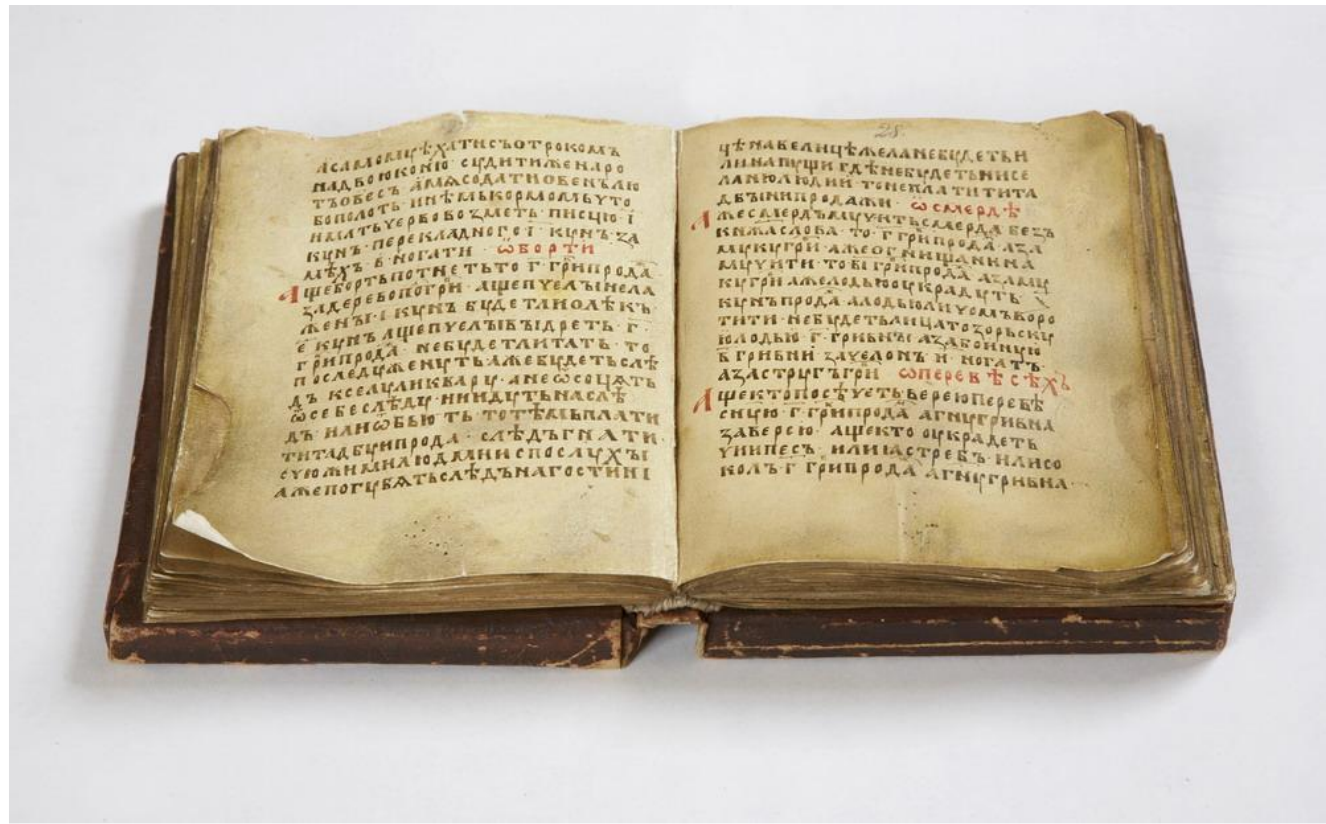 асамомꙋѣхатисъотрокомъ
надвоюконю·сꙋдитиженаро
тъовесъ·амѧсодатиовенълю
бополоть·инѣмькормомьѹто
иматьчервовозметь·писцю·і·
кꙋнъ·перекладного·і·кꙋнъ·за
мѣхъ·в·ногати·ѡборти
Ащебортьпотнетьто·г҃·гр҃ипрода
задеревопогри·ащепчелъінела
женъі·і·кꙋнъбꙋдетлиолѣкъ·
е҃кꙋнъащепчелъівъідреть·г҃·
гр҃ипрода·небꙋдетлитать·то
последꙋженꙋтьажебꙋдетьслѣ
дъкселꙋликварꙋ·анеѿсочѧть
ѿсебеслѣдꙋ·ниидꙋтьнаслѣ
дъ·илиѿбьють·тотѣмъплати
титадбꙋипрода·слѣдъгнати·
сꙋюжимилюдмииспослꙋхъі
ажепогꙋбѧтьслѣдънагостині
28.
цѣнавелицѣжеланебꙋдетьи
линапꙋщигдѣнебꙋдетьнисе
ланюлюдии·тонеплатитита
двъінипродажи·ѡсмердѣ
Ажесмердъмꙋчитьсмердабезъ
кнѧжаслова·то·г҃·гр҃ипрода·аза
мꙋкꙋгр҃и·ажеогнищанина
мꙋчити·тові·гр҃ипрода·азамꙋ
кꙋгр҃иажелодьюꙋкрадꙋть·
кꙋнъпрода·алодьюличомъворо
тити·небꙋдетьлицатозорьскꙋ
юлодью·г҃·гривнъі·азабоиную
в҃гривни·зачелонъ·и·ногатъ·
азастрꙋгъгр҃и·ѡперевѣсѣхъ
Ащектопосѣчетьверюперевѣ
снꙋю·г҃·гр҃ипрода·агн҃ꙋгривна
заверсю·ащектооукрадеть
чиипесъ·илиꙗстребъ·илисо
колъ·г҃·гр҃ипрода·агн҃ꙋгривна